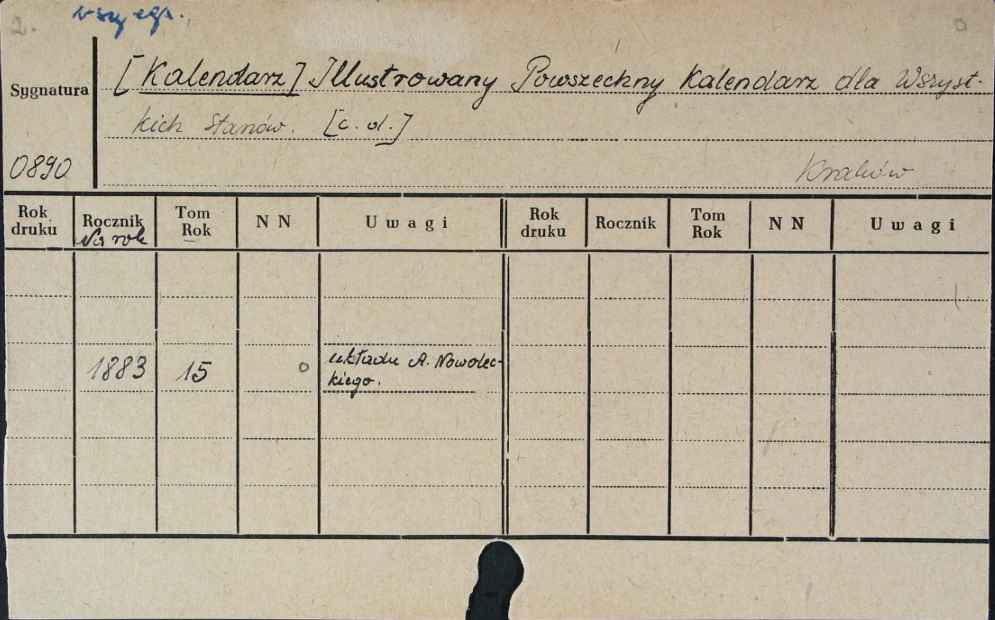 2.
Sygnatura
[Kalendarz] Illustrowany Powszechny Kalendarz dla Wszyst-
kich Stanów. [c.d.]
0890
Kraków
Rok druku Rocznik Na rok Tom Rok N N Uwagi Rok druku Rocznik Tom Rok N N Uwagi
1883 15 układu A. Nowolec-
kiego.